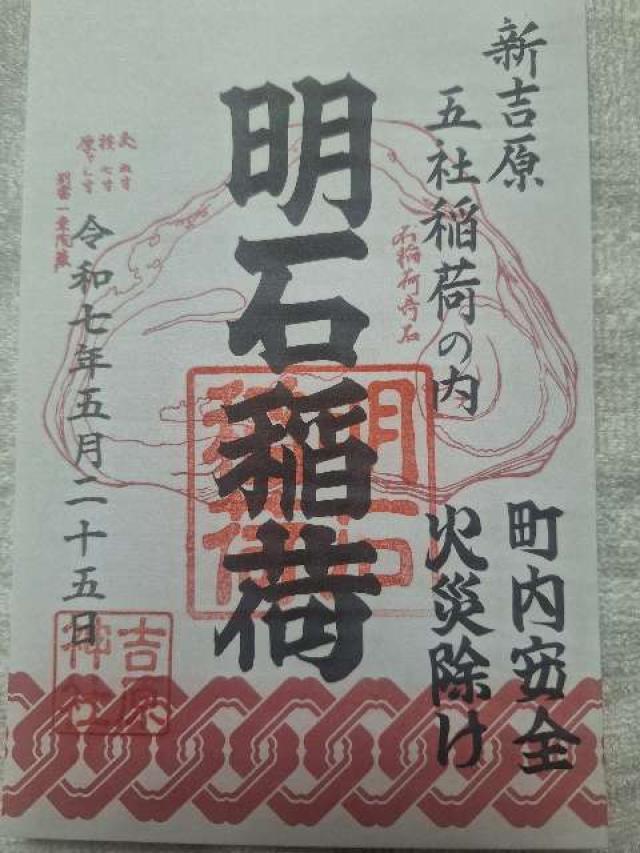 新吉原
五社稲荷の内
町内安全
火災除け
明石稲荷
石稲荷奇石
明石
稲荷
令和七年五月二十五日
吉原
神社